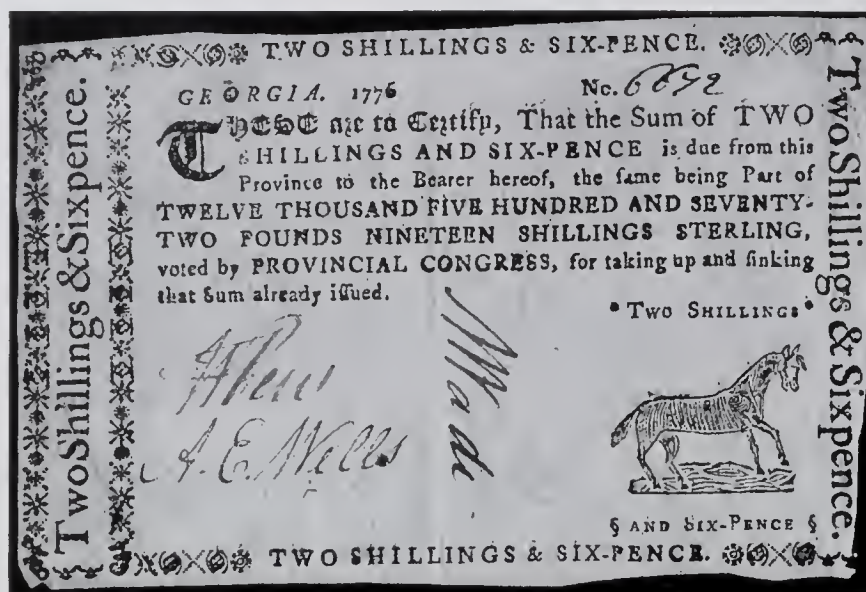 TWO SHILLINGS & SIX-PENCE.
TwoShillings & Sixpence.
GEORGIA. 1776
No. 6672
THESE are to Certify, That the Sum of TWO
SHILLINGS AND SIX-PENCE is due from this
Province to the Bearer hereof, the ſame being Part of
TWELVE THOUSAND FIVE HUNDRED AND SEVENTY-
TWO POUNDS NINETEEN SHILLINGS STERLING,
voted by PROVINCIAL CONGRESS, for taking up and ſinking
that Sum already iſſued.
A. E. Wells
Wad
• TWO SHILLINGS •
§ AND SIX-PENCE §
TwoShillings & Sixpence.
TWO SHILLINGS & SIX-PENCE.